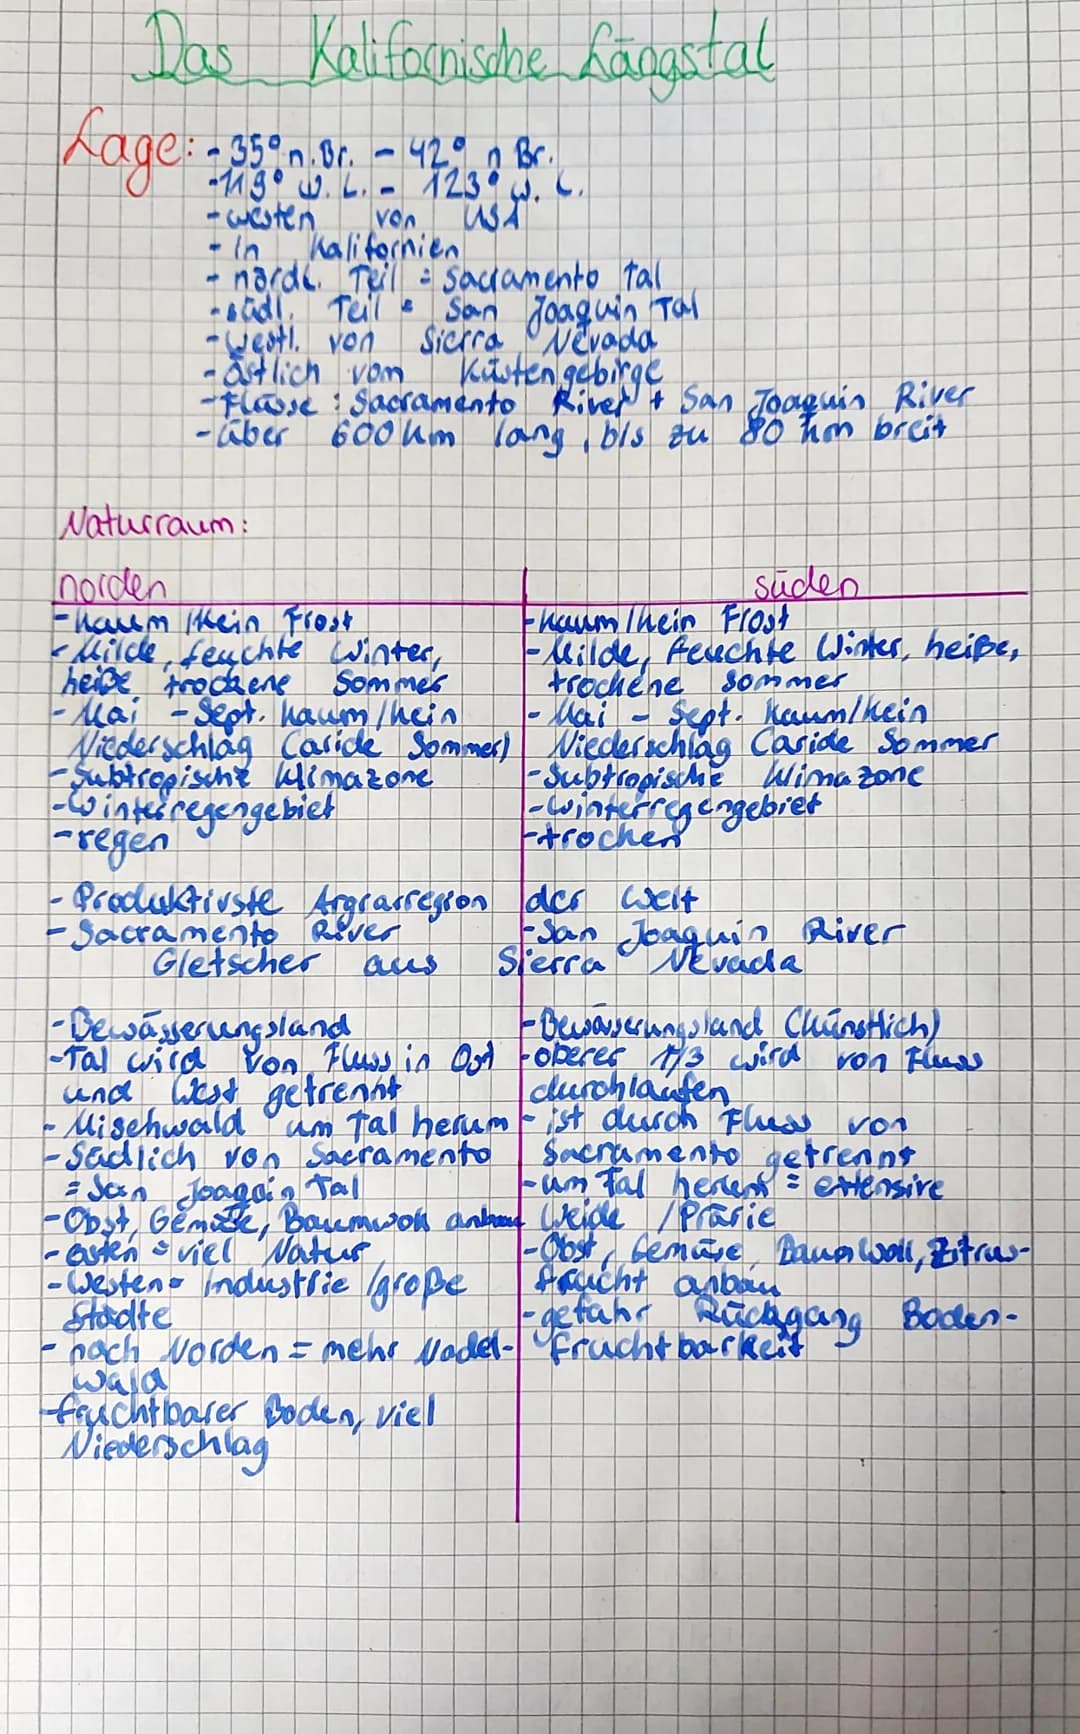 Das Kalifornische Längstal
Lage: - 35° n. Br. - 42° n Br.
- 119° w. L. - 123° w. L.
- westen von USA
- in Kalifornien
- nördl. Teil = Sacramento Tal
- südl. Teil = San Joaquin Tal
- westl. von Sierra Nevada
- Östlich vom Küstengebirge
- Flüsse : Sacramento River + San Joaquin River
- über 600 km lang, bis zu 80 km breit
Naturraum:
norden
- kaum / kein Frost
- Milde, feuchte Winter,
heiße, trockene Sommer
- Mai - Sept. kaum / kein
Niederschlag (aride Sommer)
- Subtropische Klimazone
- Winterregengebiet
- regen
süden
- kaum / kein Frost
- Milde, feuchte Winter, heiße,
trockene Sommer
- Mai - Sept. kaum/kein
Niederschlag (aride Sommer
- Subtropische Klimazone
- Winterregengebiet
- trocken
- Produktivste Argrarregion der Welt
- Sacramento River - San Joaquin River
Gletscher aus Sierra Nevada
- Bewässerungsland
- Tal wird von Fluss in Ost
und West getrennt
- Mischwald um Tal herum
- Südlich von Sacramento
= San Joaquin Tal
- Obst, Gemüse, Baumwoll anbau
- osten = viel Natur
- Westen = Industrie / große
Städte
- nach Norden = mehr Nadel-
wald
- fruchtbarer Boden, viel
Niederschlag
- Bewässerungsland (künstlich)
- oberer 1/3 wird von Fluss
durchlaufen
- ist durch Fluss von
Sacramento getrennt
- um Tal herum = extensive
Weide / Prärie
- Obst, Gemüse, Baumwoll, Zitrus-
frucht anbau
- gefahr Rückgang Boden-
fruchtbarkeit